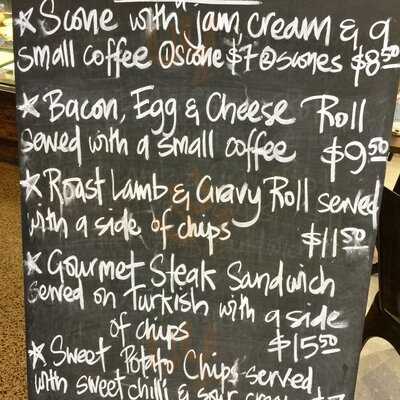 ★ Scone with jam, cream & a
small coffee ①scone $7 ②scones $8.50
★ Bacon, Egg & Cheese Roll
served with a small coffee $9.50
★ Roast Lamb & Gravy Roll served
with a side of chips
$11.50
★ Gourmet Steak Sandwich
served on Turkish with a side
of chips $15.50
★ Sweet Potato Chips served
with sweet chilli & sour